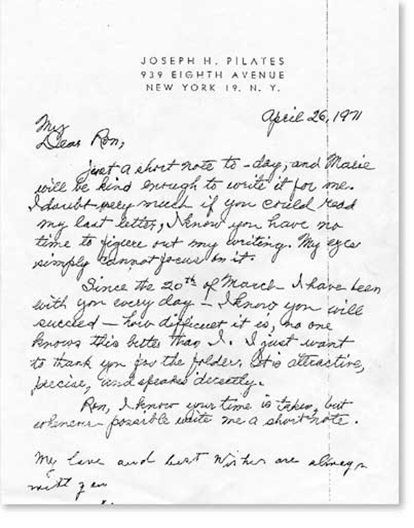 JOSEPH H. PILATES
939 EIGHTH AVENUE
NEW YORK 19. N. Y.
April 26, 1971
My
Dear Ron,
just a short note to-day, and Marie
will be kind enough to write it for me.
I doubt very much if you could read
my last letter, I know you have no
time to figure out my writing. My eyes
simply cannot focus on it.
Since the 20th of March I have been
with you every day — I know you will
succeed — how difficult it is, no one
knows this better than I. I just want
to thank you for the folder. It is attractive,
precise, and speaks directly.
Ron, I know your time is taken, but
whenever possible write me a short note.
My love and best wishes are always
with you